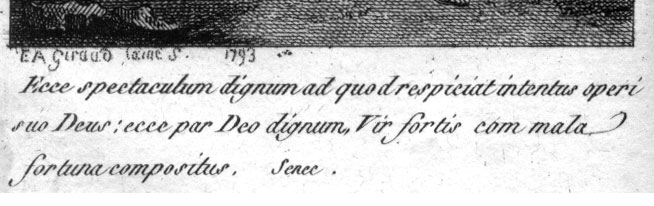 E A Giraud laine S. 1793
Ecce spectaculum dignum ad quod respiciat intentus operi
suo Deus; ecce par Deo dignum, Vir fortis com mala
fortuna compositus. Senec.